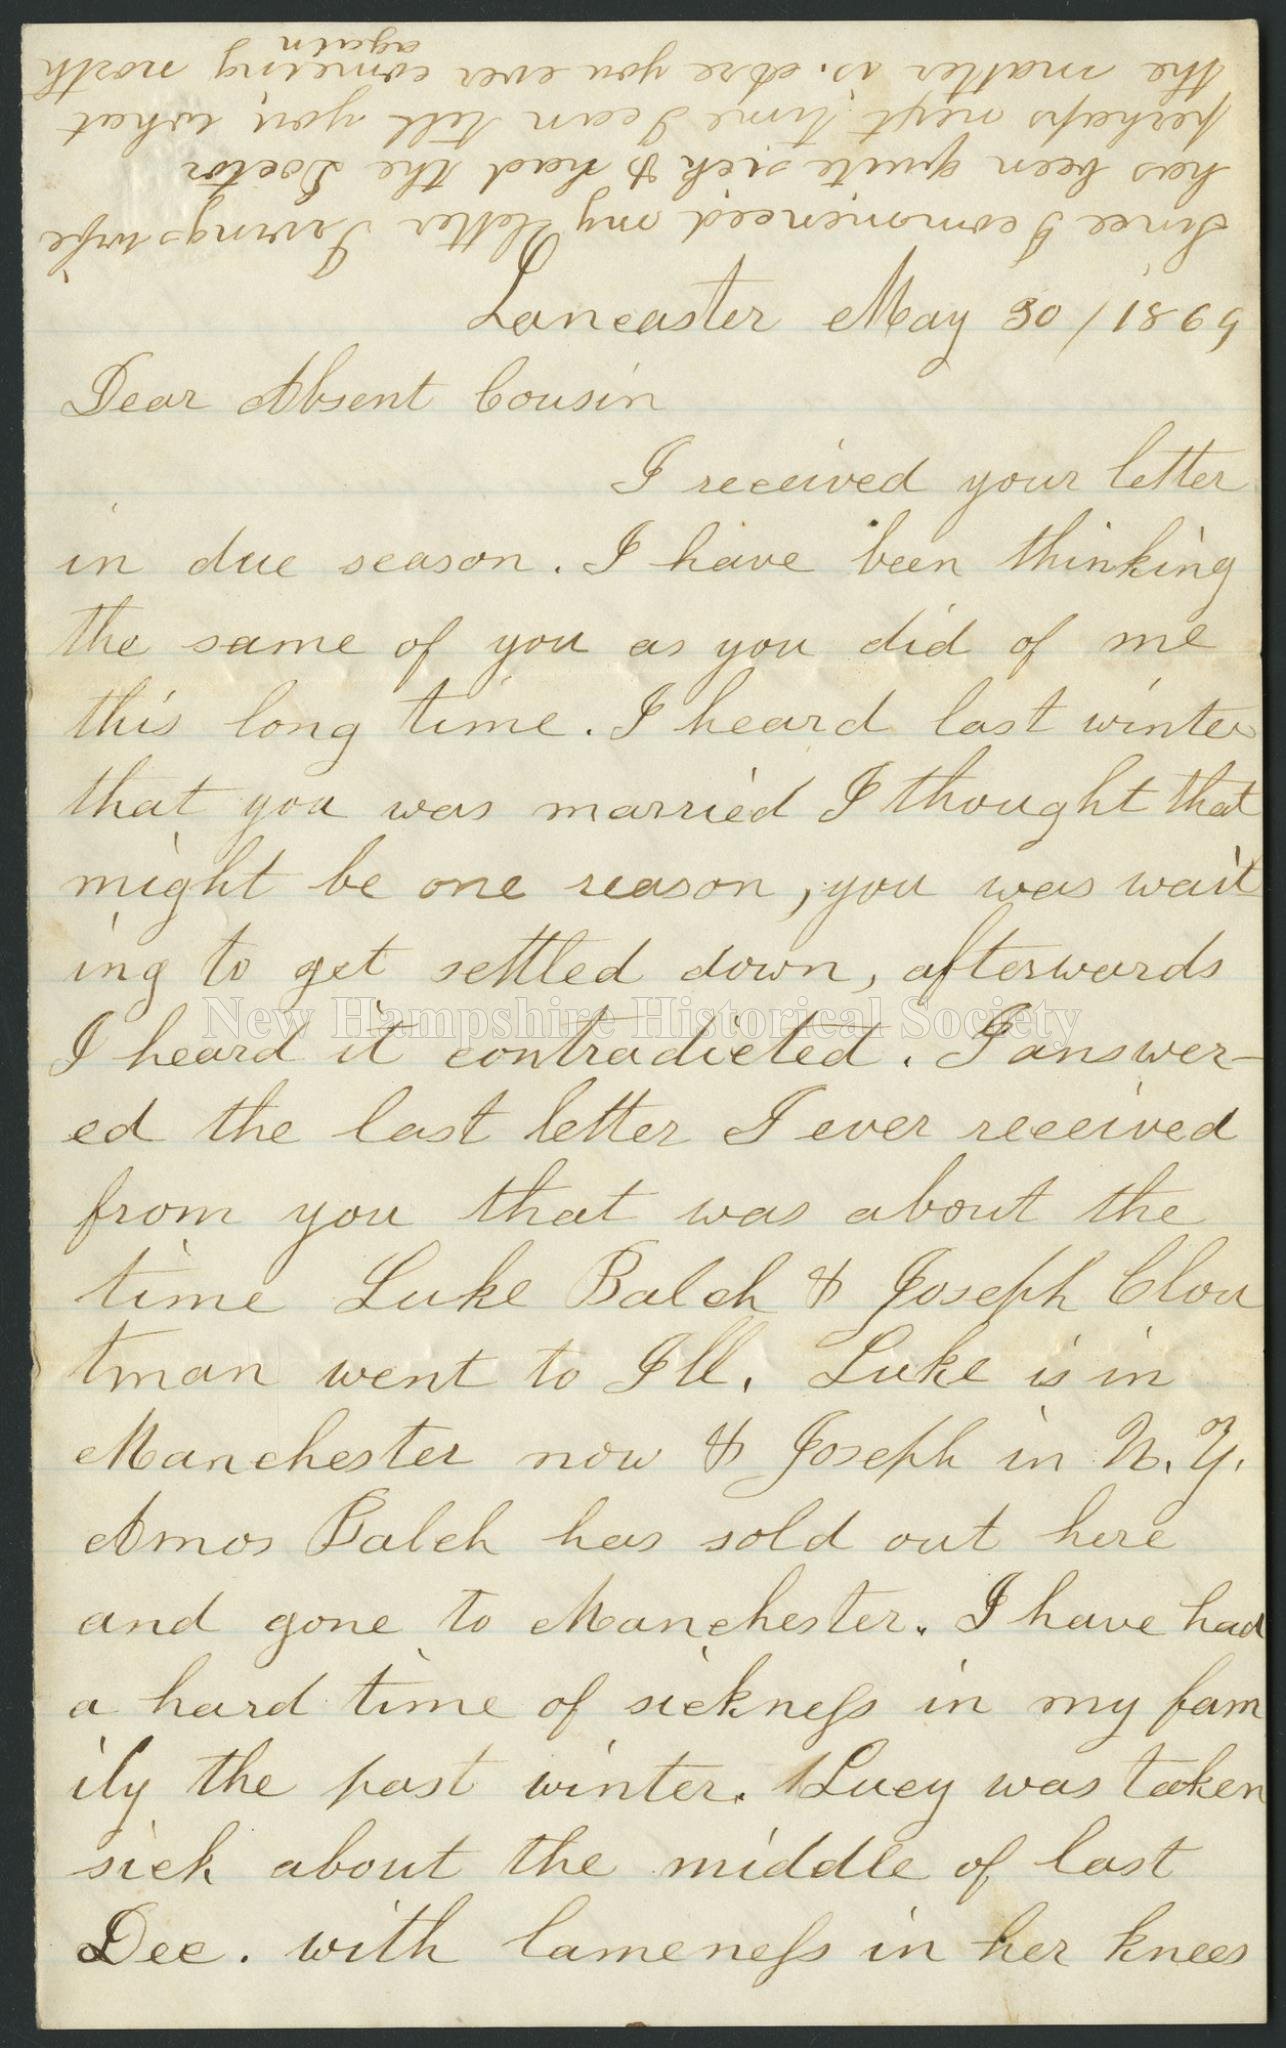 Since I commenced my letter Irvings wife
has been quite sick & had the Doctor
perhaps next time I can tell you what
the matter is. Are you ever comeing north
again
Lancaster May 30/1869
Dear Absent Cousin
I received your letter
in due season. I have been thinking
the same of you as you did of me
this long time. I heard last winter
that you was married I thought that
might be one reason, you was wait
ing to get settled down, afterwards
I heard it contradicted. I answer-
ed the last letter I ever received
from you that was about the
time Luke Balch & Joseph Clou
tman went to Ill. Luke is in
Manchester now & Joseph in N.Y.
Amos Balch has sold out here
and gone to Manchester. I have had
a hard time of sickness in my fam
ily the past winter. Lucy was taken
sick about the middle of last
Dec. with lameness in her knees
New Hampshire Historical Society